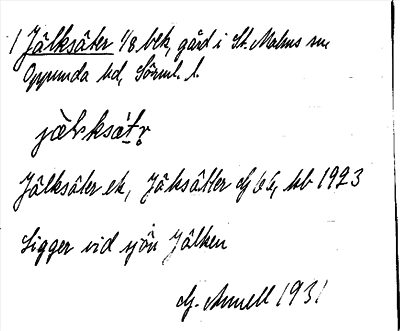 1 Jälksäter 1/8 blk, gård i St. Malms sn
Oppunda hd, Sörml. l.
Jälksäter ek, Jäksätter GEG, hb 1923
Ligger vid sjön Jälken
G. Annell 1931